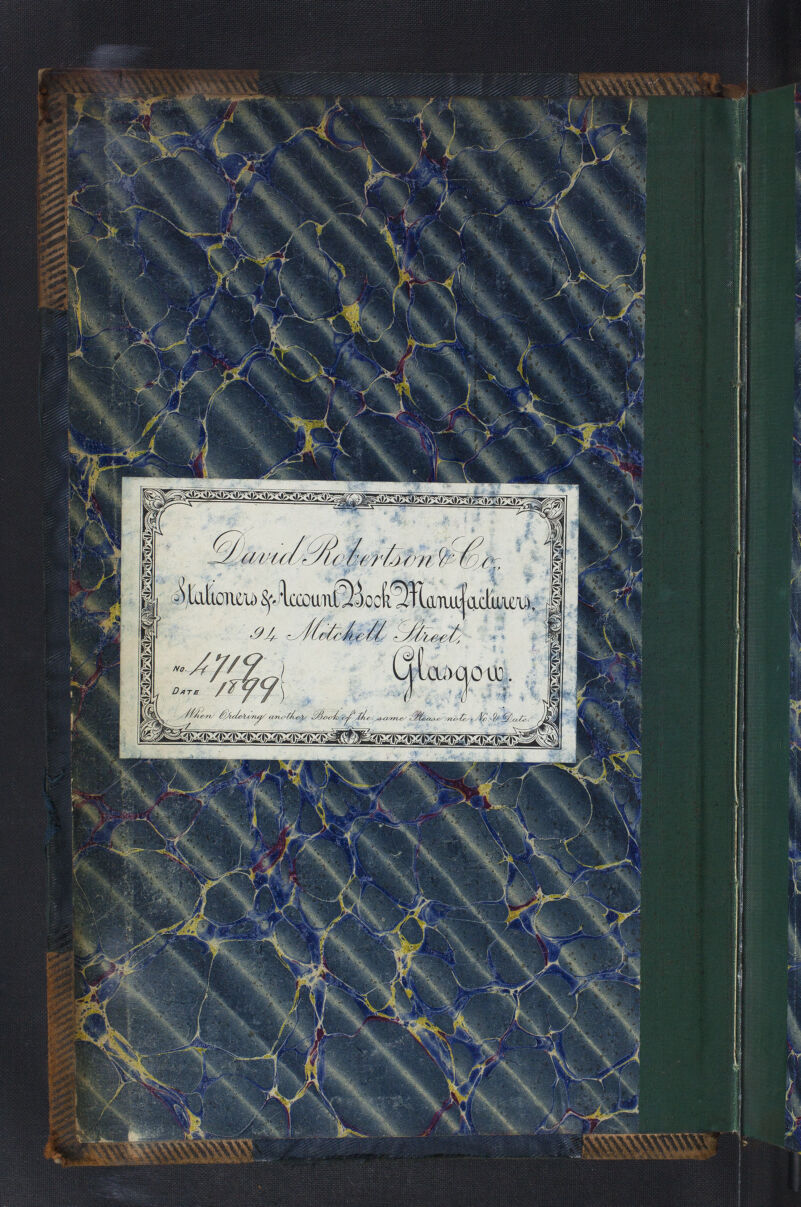 David Robertson & Co.
Stationers & Account Book Manufacturers,
94 Mitchell Street,
Glasgow.
No. 4719
Date 1899
When Ordering another Book of the same Please note No. & Date.